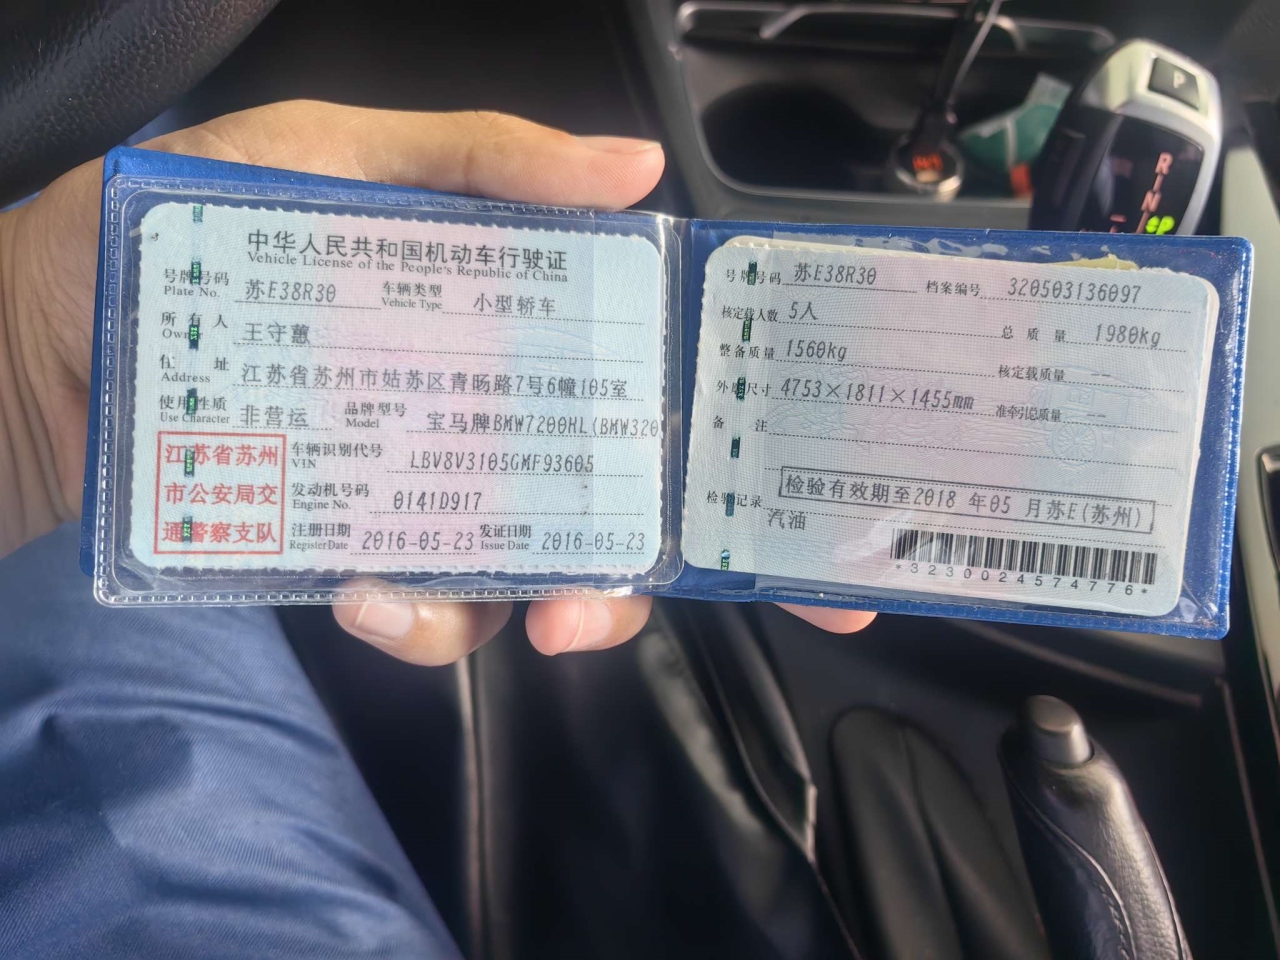 中华人民共和国机动车行驶证
Vehicle License of the People's Republic of China
号牌号码 苏E38R30 车辆类型 小型轿车
Plate No. Vehicle Type
所有人 王守蕙
Owner
住址 江苏省苏州市姑苏区青旸路7号6幢105室
Address
使用性质 非营运 品牌型号 宝马牌BMW7200HL(BMW320
Use Character Model
江苏省苏州
市公安局交
通警察支队
车辆识别代号 LBV8V3105GMF93605
VIN
发动机号码 0141D917
Engine No.
注册日期 2016-05-23 发证日期 2016-05-23
Register Date Issue Date
号牌号码 苏E38R30 档案编号 320503136097
核定载人数 5人 总质量 1980kg
整备质量 1560kg 核定载质量 --
外廓尺寸 4753×1811×1455mm 准牵引总质量 --
备注
检验有效期至2018 年05 月苏E(苏州)
检验记录
汽油
*3230024574776*
P
R
N